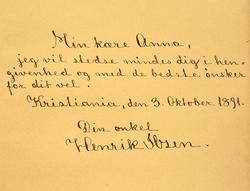 Min kære Anna,
jeg vil stedse mindes dig i hen-
givenhed og med de bedste ønsker
for dit vel.
Kristiania, den 3. Oktober 1891.
Din onkel
Henrik Ibsen.